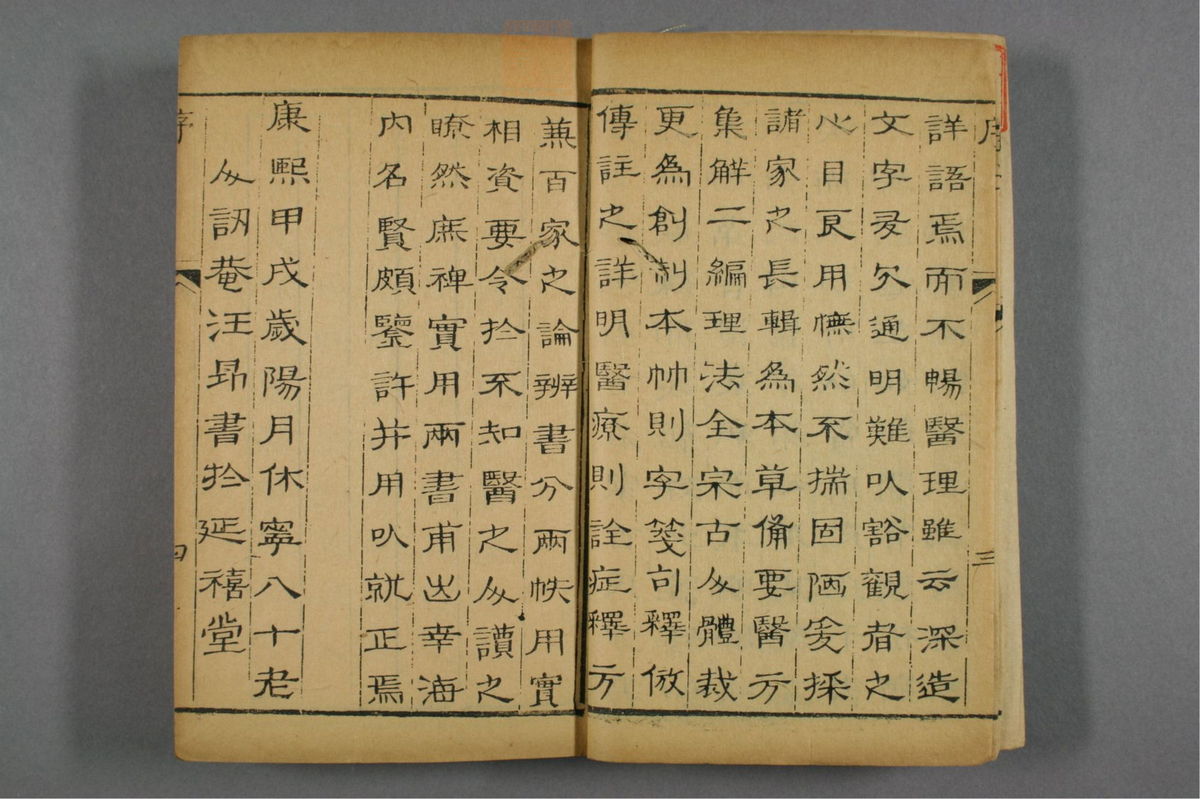 序 三
詳語焉而不暢醫理雖云深造
文字多欠通明難㕥豁觀者之
心目良用憮然不揣固陋爰採
諸家之長輯為本草備要醫方
集解二編理法全宗古人體裁
更為創制本艸則字箋句釋倣
傳註之詳明醫療則詮症釋方
兼百家之論辨書分兩帙用實
相資要令於不知醫之人讀之
瞭然庶裨實用兩書甫出幸海
內名賢頗鑒許并用㕥就正焉
康熙甲戌歲陽月休寧八十老
人訒菴汪昂書於延禧堂
序 四